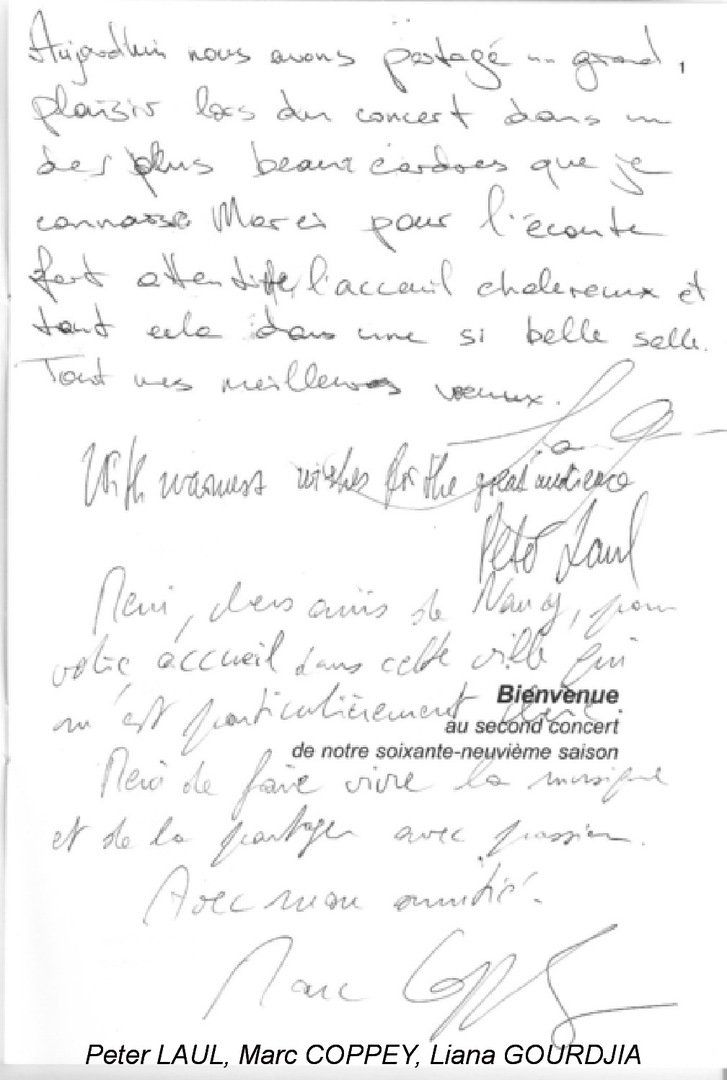 Aujourdhui nous avons partagé un grand
plaisir lors du concert dans un
des plus beaux cardres que je
connasse Marci pour l'écoute
fort attentife, l'accueil chalereux et
tout cela dans une si belle salle.
Tout mes meilleures voeuux.
With warmest wishes for the great audience
Peter Laul
Merci, chers amis de Nancy, pour
votre accueil dans cette ville qui
m'est particulièrement chère.
Bienvenue
au second concert
de notre soixante-neuvième saison
Merci de faire vivre la musique
et de la partager avec passion.
Avec mon amitié.
Marc Coppey
Peter LAUL, Marc COPPEY, Liana GOURDJIA